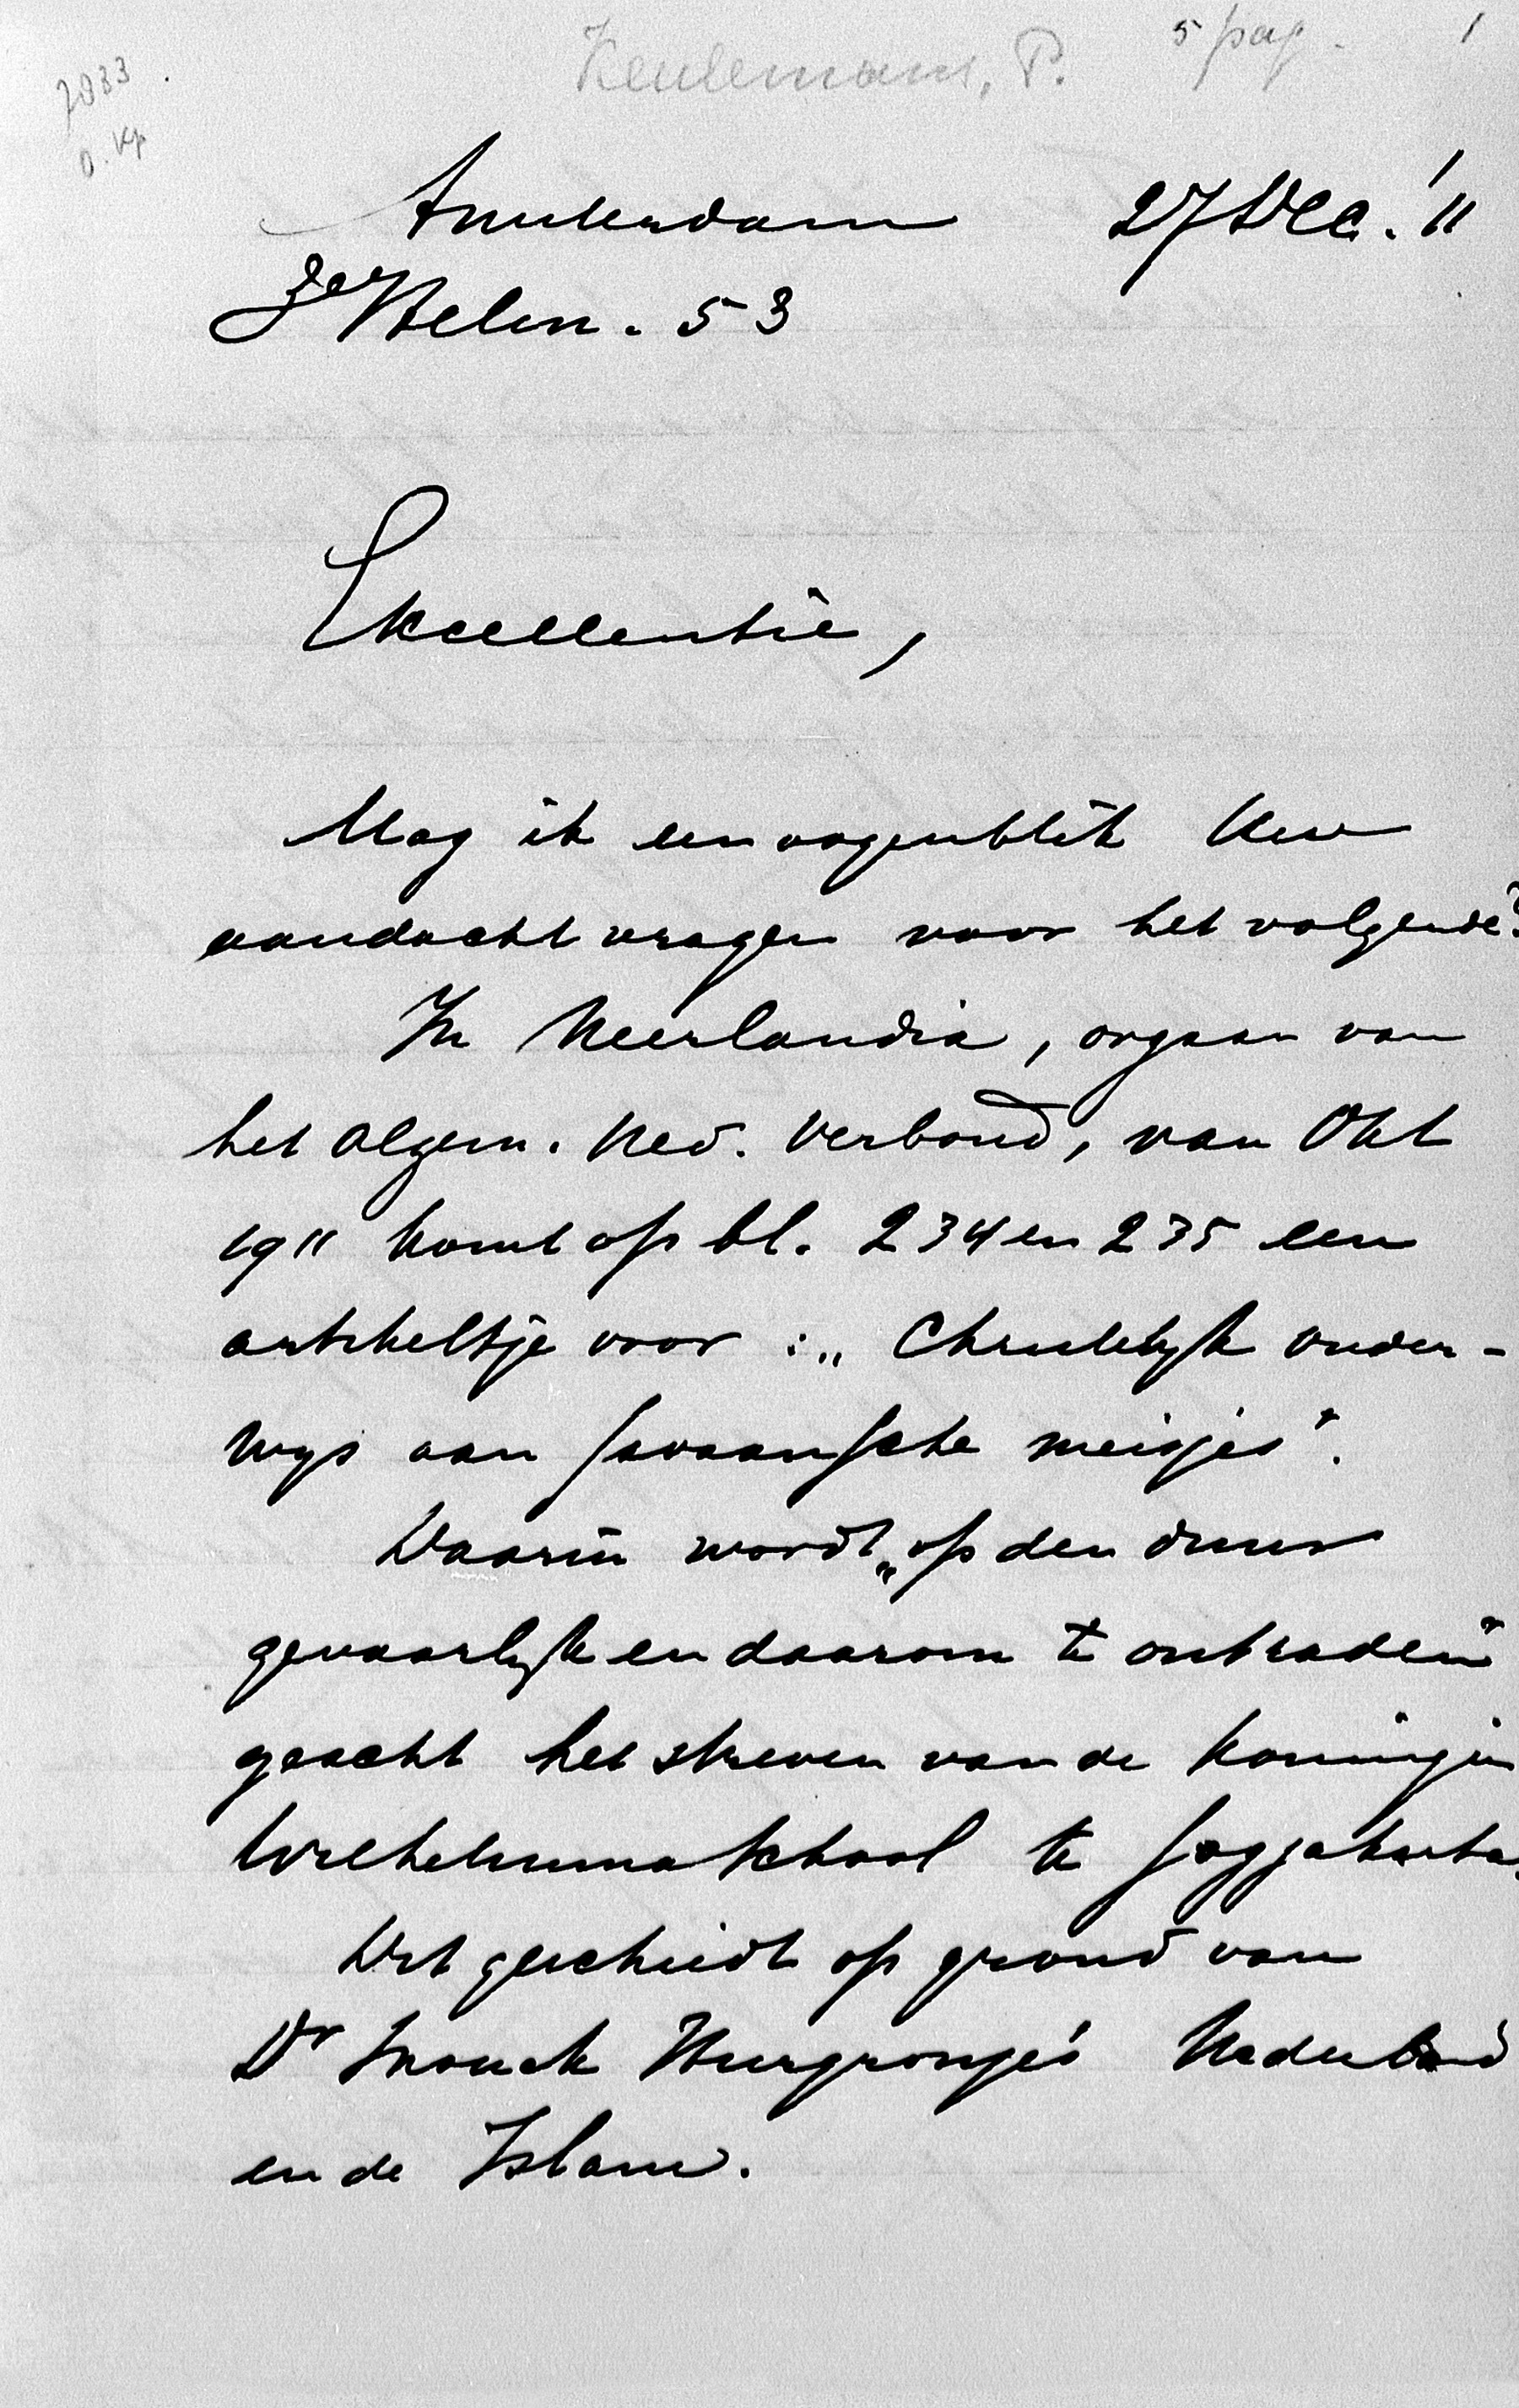 7033.
O. Kp
Keulemans, P. 5 pag. 1
Amsterdam 27 Dec. '11
2e Helm. 53
Excellentie,
Mag ik een oogenblik Uw
aandacht vragen voor het volgende?
In Neerlandia, orgaan van
het Algem. Ned. Verbond, van Okt
1911 komt op bl. 234 en 235 een
artikeltje voor: „Christelijk Onder-
wijs aan Javaansche meisjes".
Daarin wordt „op den duur
gevaarlijk en daarom te ontraden"
geacht het streven van de Koningin
Wilhelminaschool te Jogjakarta.
Dit geschiedt op grond van
Dr Snouck Hurgronje's Nederland
en de Islam.